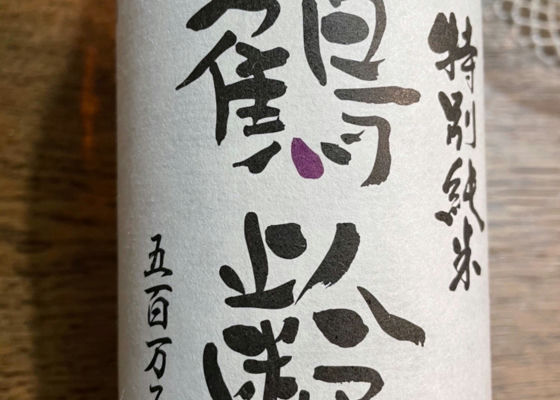 特別純米
鶴齢
五百万